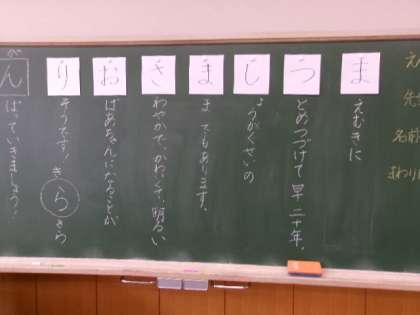 名前
まわり
まえむきに
つとめつづけて 早 二十年。
しょうがくせいの
ままでもあります。
さわやかで、かわいく、明るい
おばあちゃんになることが
りそうです!
き
らきら
が
んばっていきましょう!